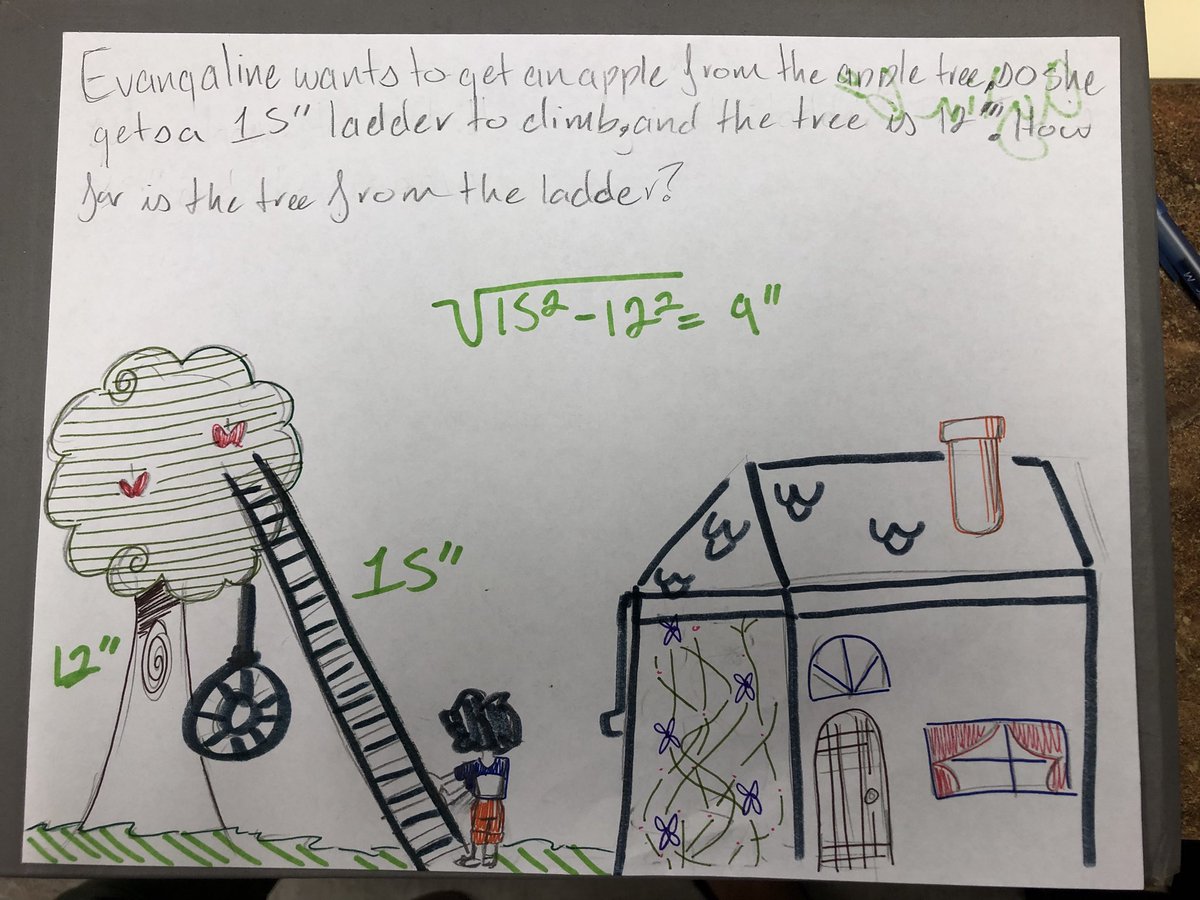 Evangaline wants to get an apple from the apple tree, so she
gets a 15" ladder to climb, and the tree is 12". How
far is the tree from the ladder?
√15²-12² = 9"
15"
12"